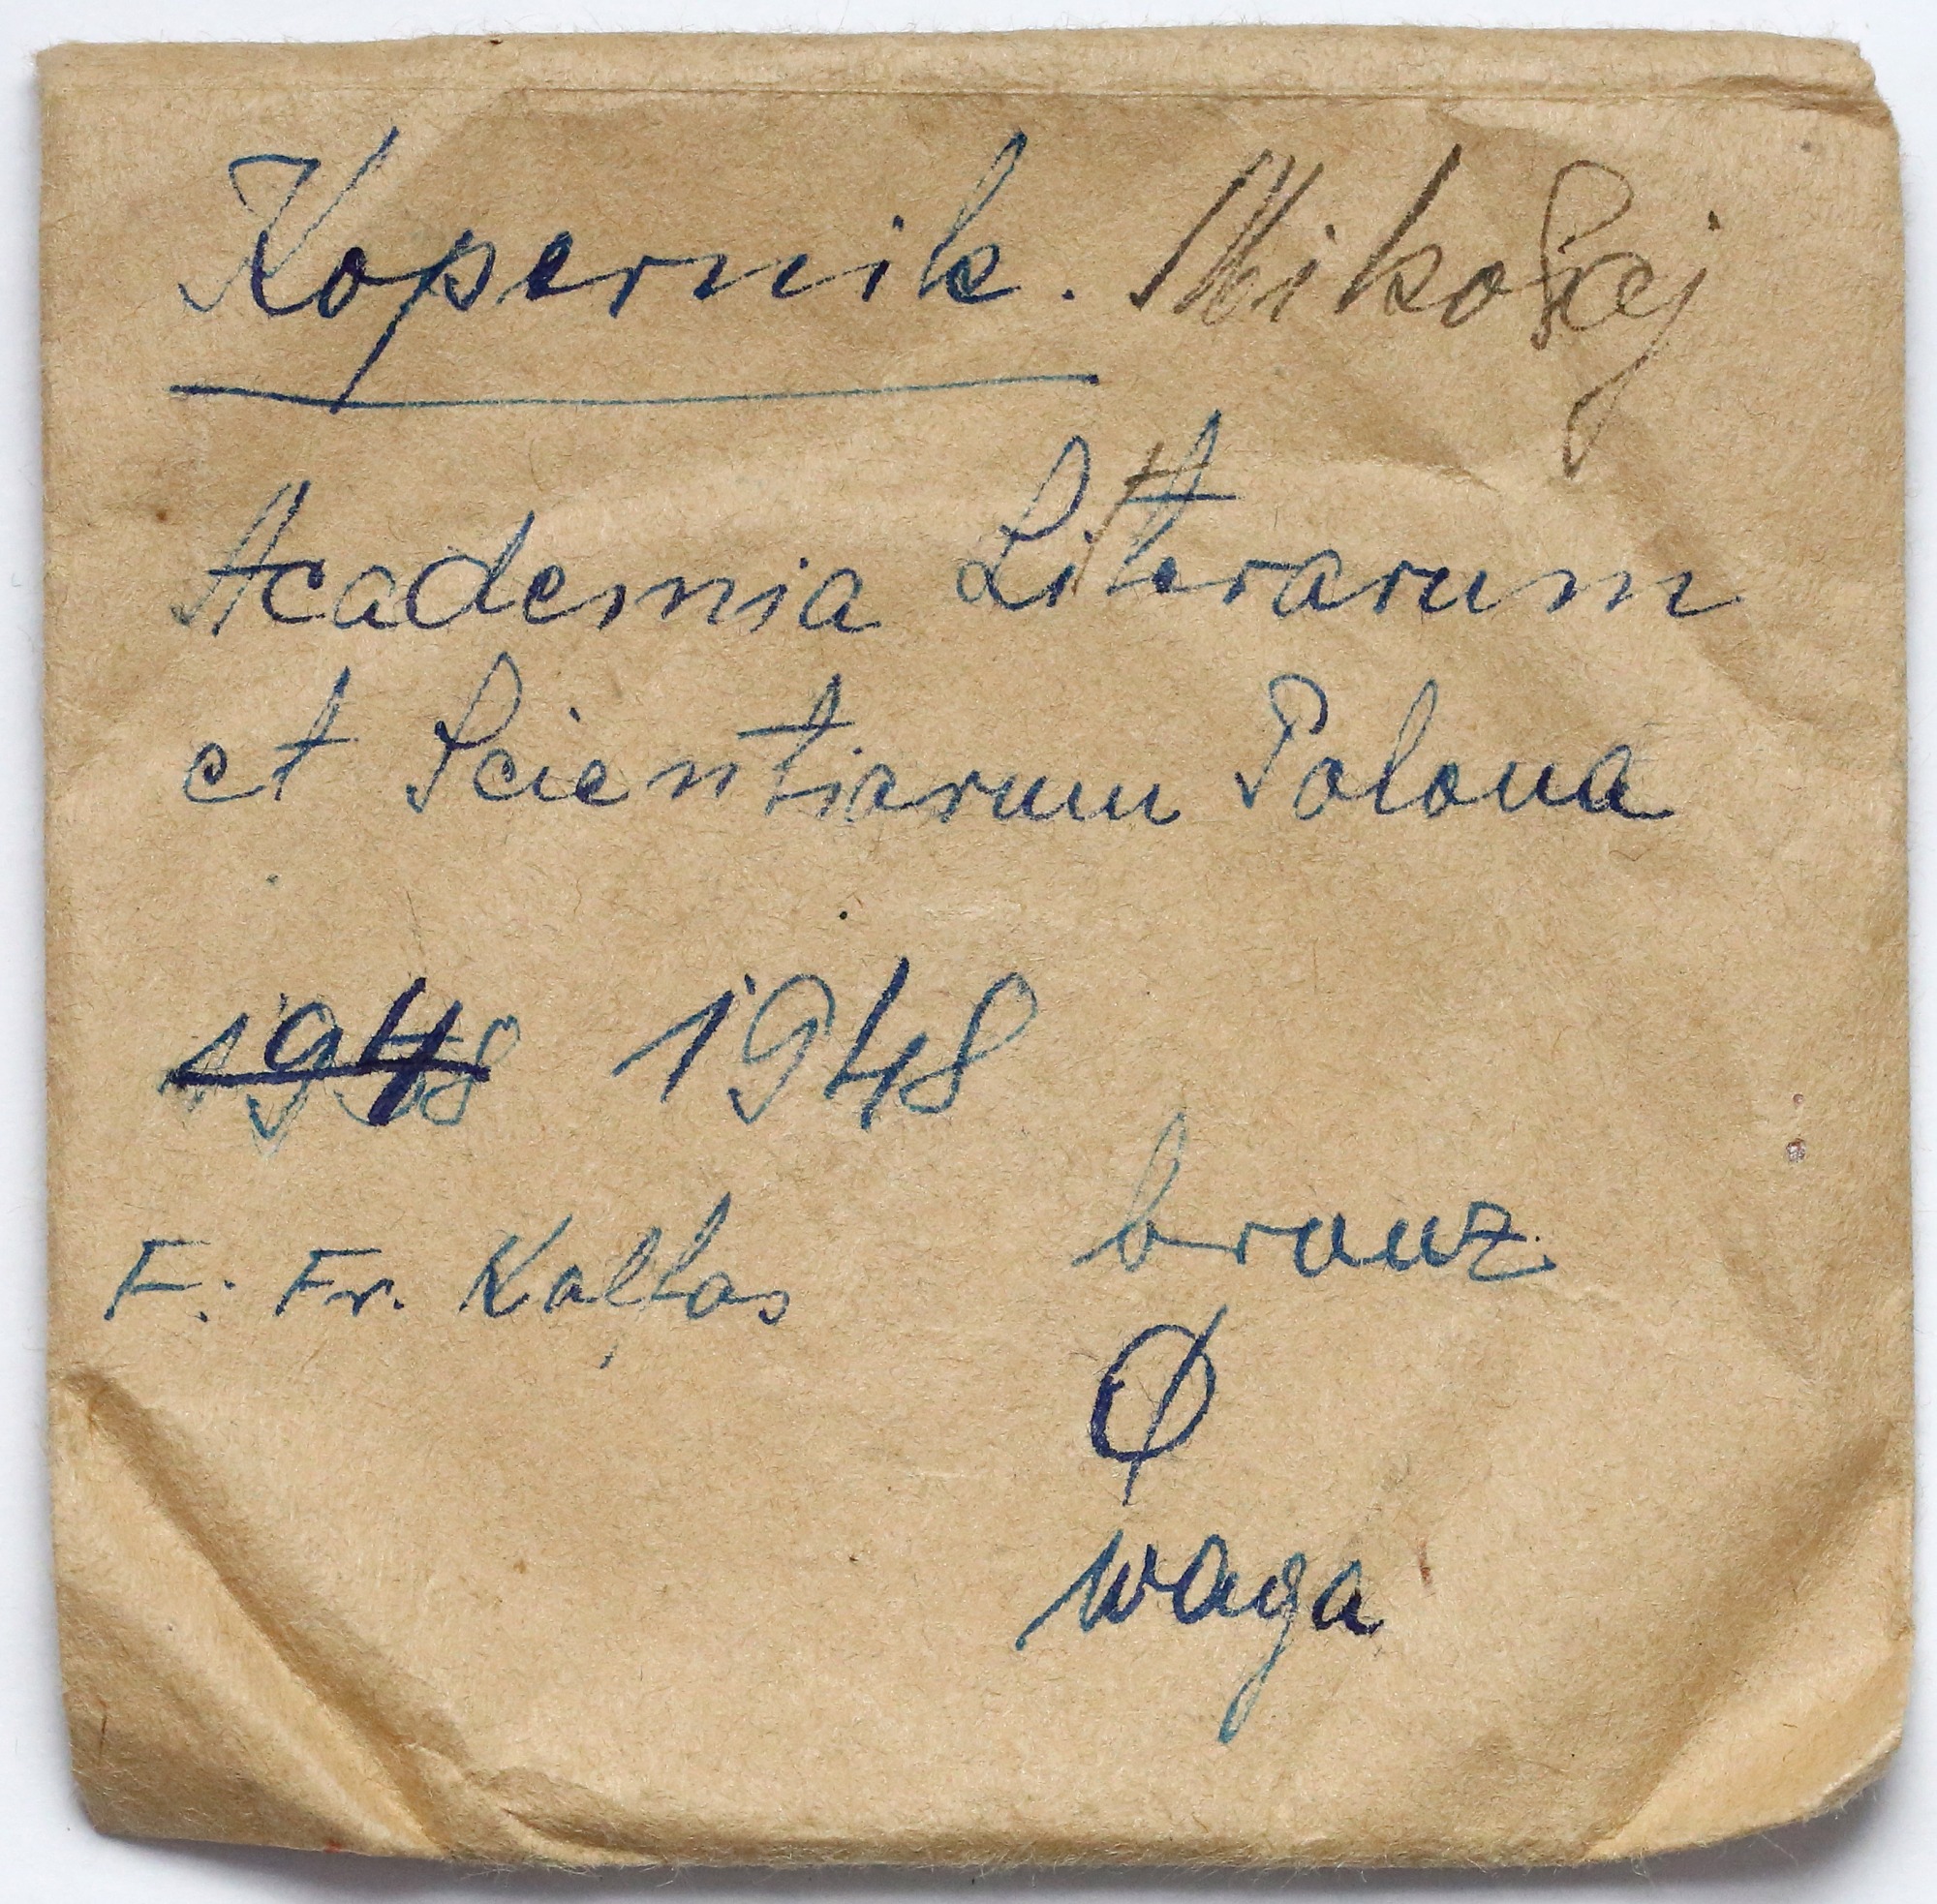 Kopernik. Mikołaj
Academia Litterarum
et Scientiarum Polona
1948 1948
F. Fr. Kalfas
bronz
Ø
waga